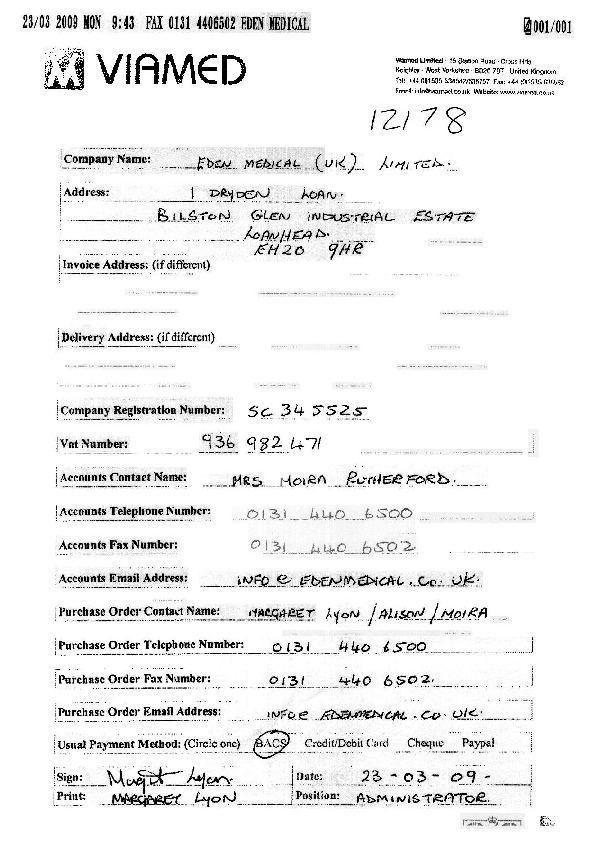 23/03 2009 MON 9:43 FAX 0131 4406502 EDEN MEDICAL 001/001
VIAMED
Viamed Limited · 15 Station Road · Cross Hills
Keighley · West Yorkshire · BD20 7DT · United Kingdom
Email: info@viamed.co.uk Website: www.viamed.co.uk
12178
Company Name: EDEN MEDICAL (UK) LIMITED.
Address: 1 DRYDEN LOAN.
BILSTON GLEN INDUSTRIAL ESTATE
LOANHEAD.
EH20 9HR
Invoice Address: (if different)
Delivery Address: (if different)
Company Registration Number: SC 345525
Vat Number: 936 982 471
Accounts Contact Name: MRS MOIRA RUTHERFORD.
Accounts Telephone Number: 0131 440 6500
Accounts Fax Number: 0131 440 6502
Accounts Email Address: INFO@EDENMEDICAL.CO.UK.
Purchase Order Contact Name: MARGARET LYON/ALISON/MOIRA
Purchase Order Telephone Number: 0131 440 6500
Purchase Order Fax Number: 0131 440 6502.
Purchase Order Email Address: INFO@EDENMEDICAL.CO.UK.
Usual Payment Method: (Circle one) BACS Credit/Debit Card Cheque Paypal
Sign: Margt Lyon Date: 23-03-09-
Print: MARGARET LYON Position: ADMINISTRATOR